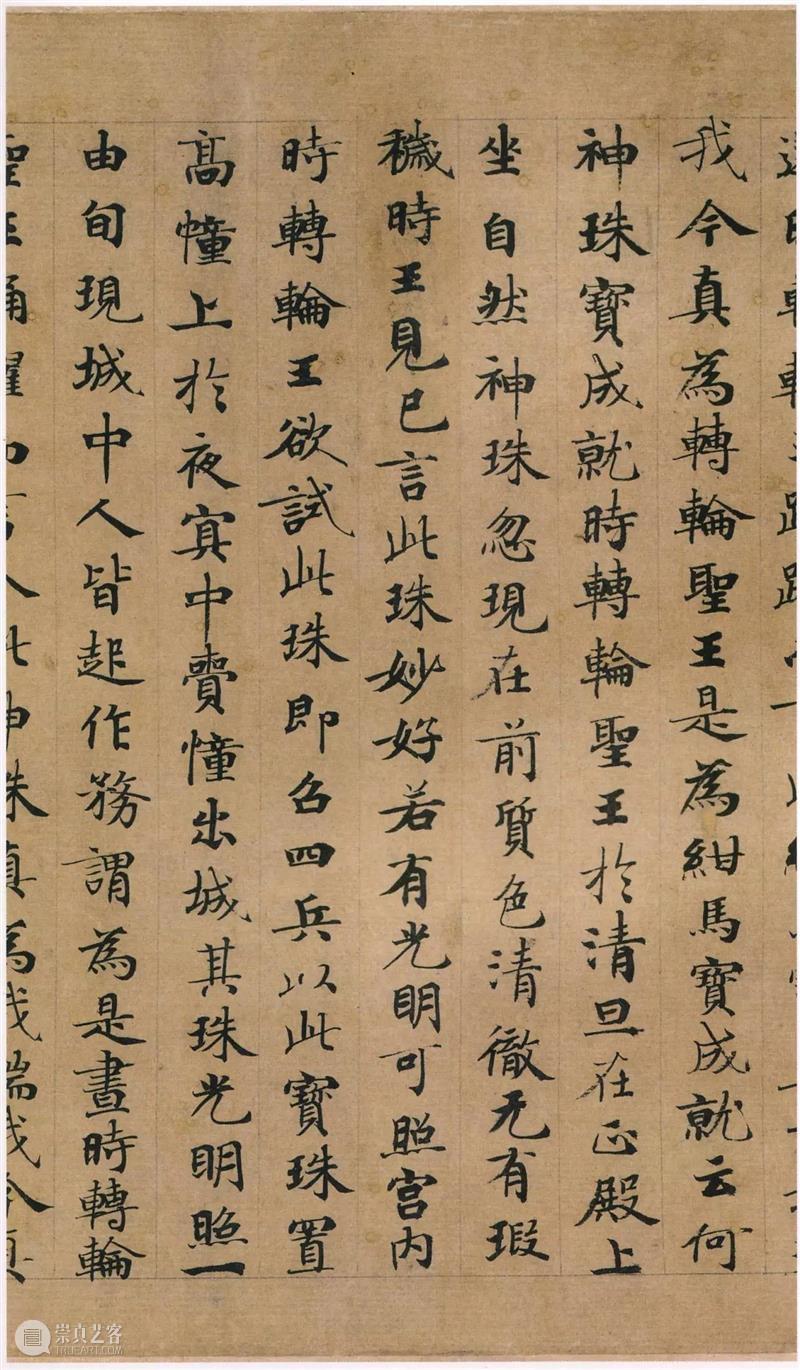 我今真為轉輪聖王是為紺馬寶成就云何
神珠寶成就時轉輪聖王於清旦在正殿上
坐自然神珠忽現在前質色清徹无有瑕
穢時王見已言此珠妙好若有光明可照宮内
時轉輪王欲試此珠即召四兵以此寶珠置
高幢上於夜㝠中賷幢出城其珠光明照一
由旬現城中人皆起作務謂為是晝時轉輪
聖王踊躍而言今此神珠真為我瑞我今真
崇真艺客
TRUEART.COM